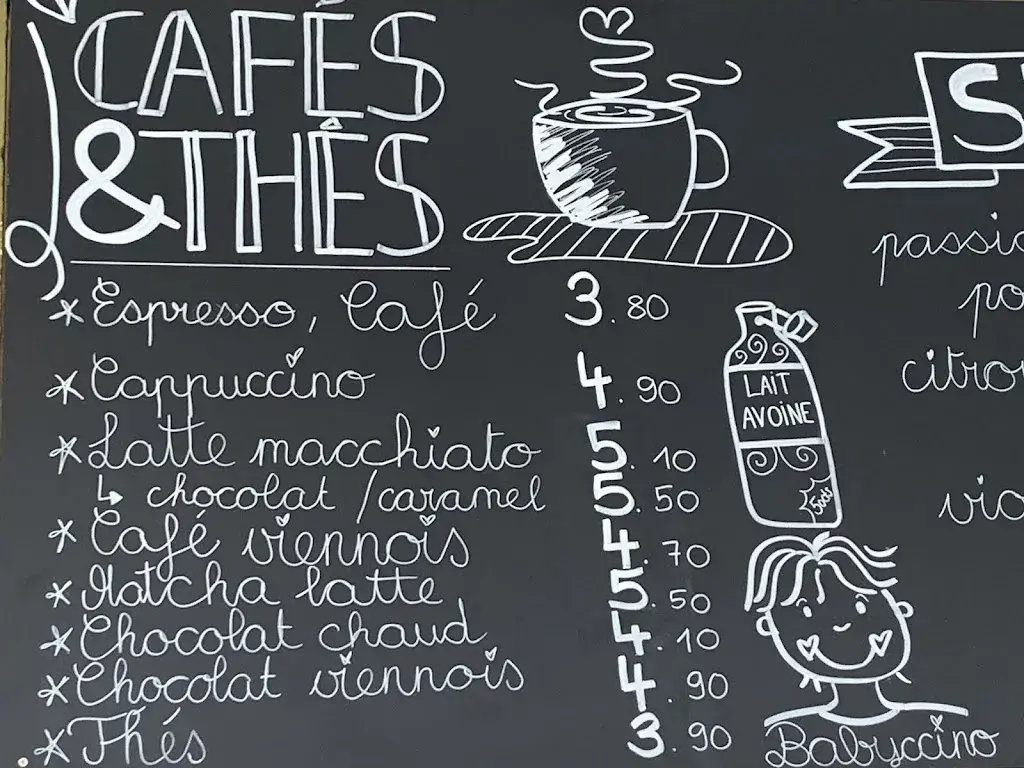 CAFÉS
& THÉS
* Espresso, Café 3.80
* Cappuccino 4.90
* Latte macchiato 5.10
↳ chocolat / caramel 5.50
* Café viennois 4.70
* Matcha latte 5.50
* Chocolat chaud 4.10
* Chocolat viennois 4.90
* Thés 3.90
LAIT
AVOINE
Babyccino
S
passio
po
citro
vio